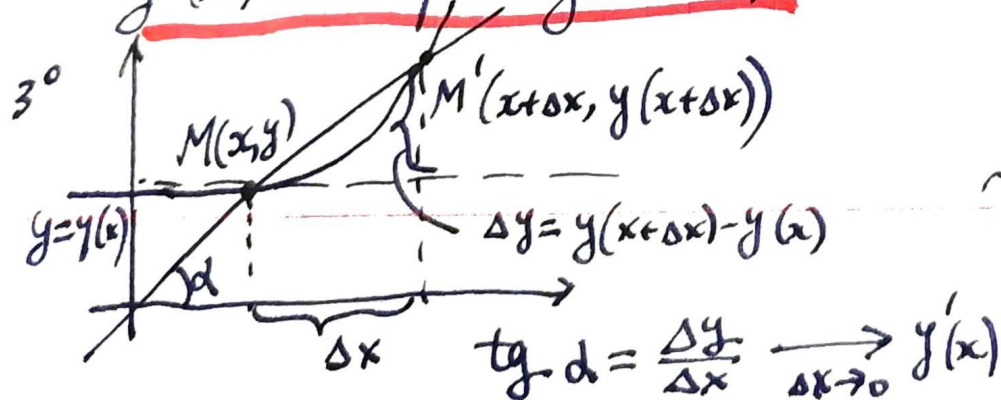 3°
M'(x+Δx, y(x+Δx))
M(x,y)
y=y(x)
Δy = y(x+Δx)-y(x)
α
Δx
tg α = Δy/Δx ⟶ y'(x)
Δx→0